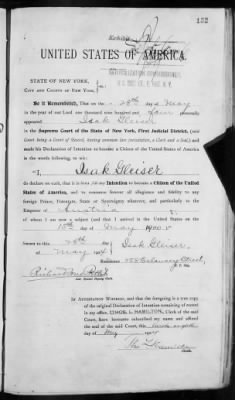 152
UNITED STATES OF AMERICA.
STATE OF NEW YORK,
CITY AND COUNTY OF NEW YORK, ss.:
Be it Remembered, That on the 28th day of May
in the year of our Lord one thousand nine hundred and four personally
appeared Isak Gleiser
in the Supreme Court of the State of New York, First Judicial District, (said
Court being a Court of Record, having common law jurisdiction, a Clerk and a Seal,) and
made his Declaration of Intention to become a Citizen of the United States of America, in
the words following, to wit:
"I, Isak Gleiser
do declare on oath, that it is bona fide my Intention to become a Citizen of the United
States of America, and to renounce forever all allegiance and fidelity to any
foreign Prince, Potentate, State or Sovereignty whatever, and particularly to
the Emperor of Austria
of whom I am now a subject (and that I arrived in the United States on
the day of May 1900.)
Sworn to this 28th
day of May 1904 Isak Gleiser,
Street,
IN ATTESTATION WHEREOF, and that the foregoing is a true copy
of the original Declaration of Intention remaining of record
in my office, I, THOS. L. HAMILTON, Clerk of the said
Court, have hereunto subscribed my name and affixed
the seal of the said Court, this
day of May 1904
Tho L Hamilton
Clerk